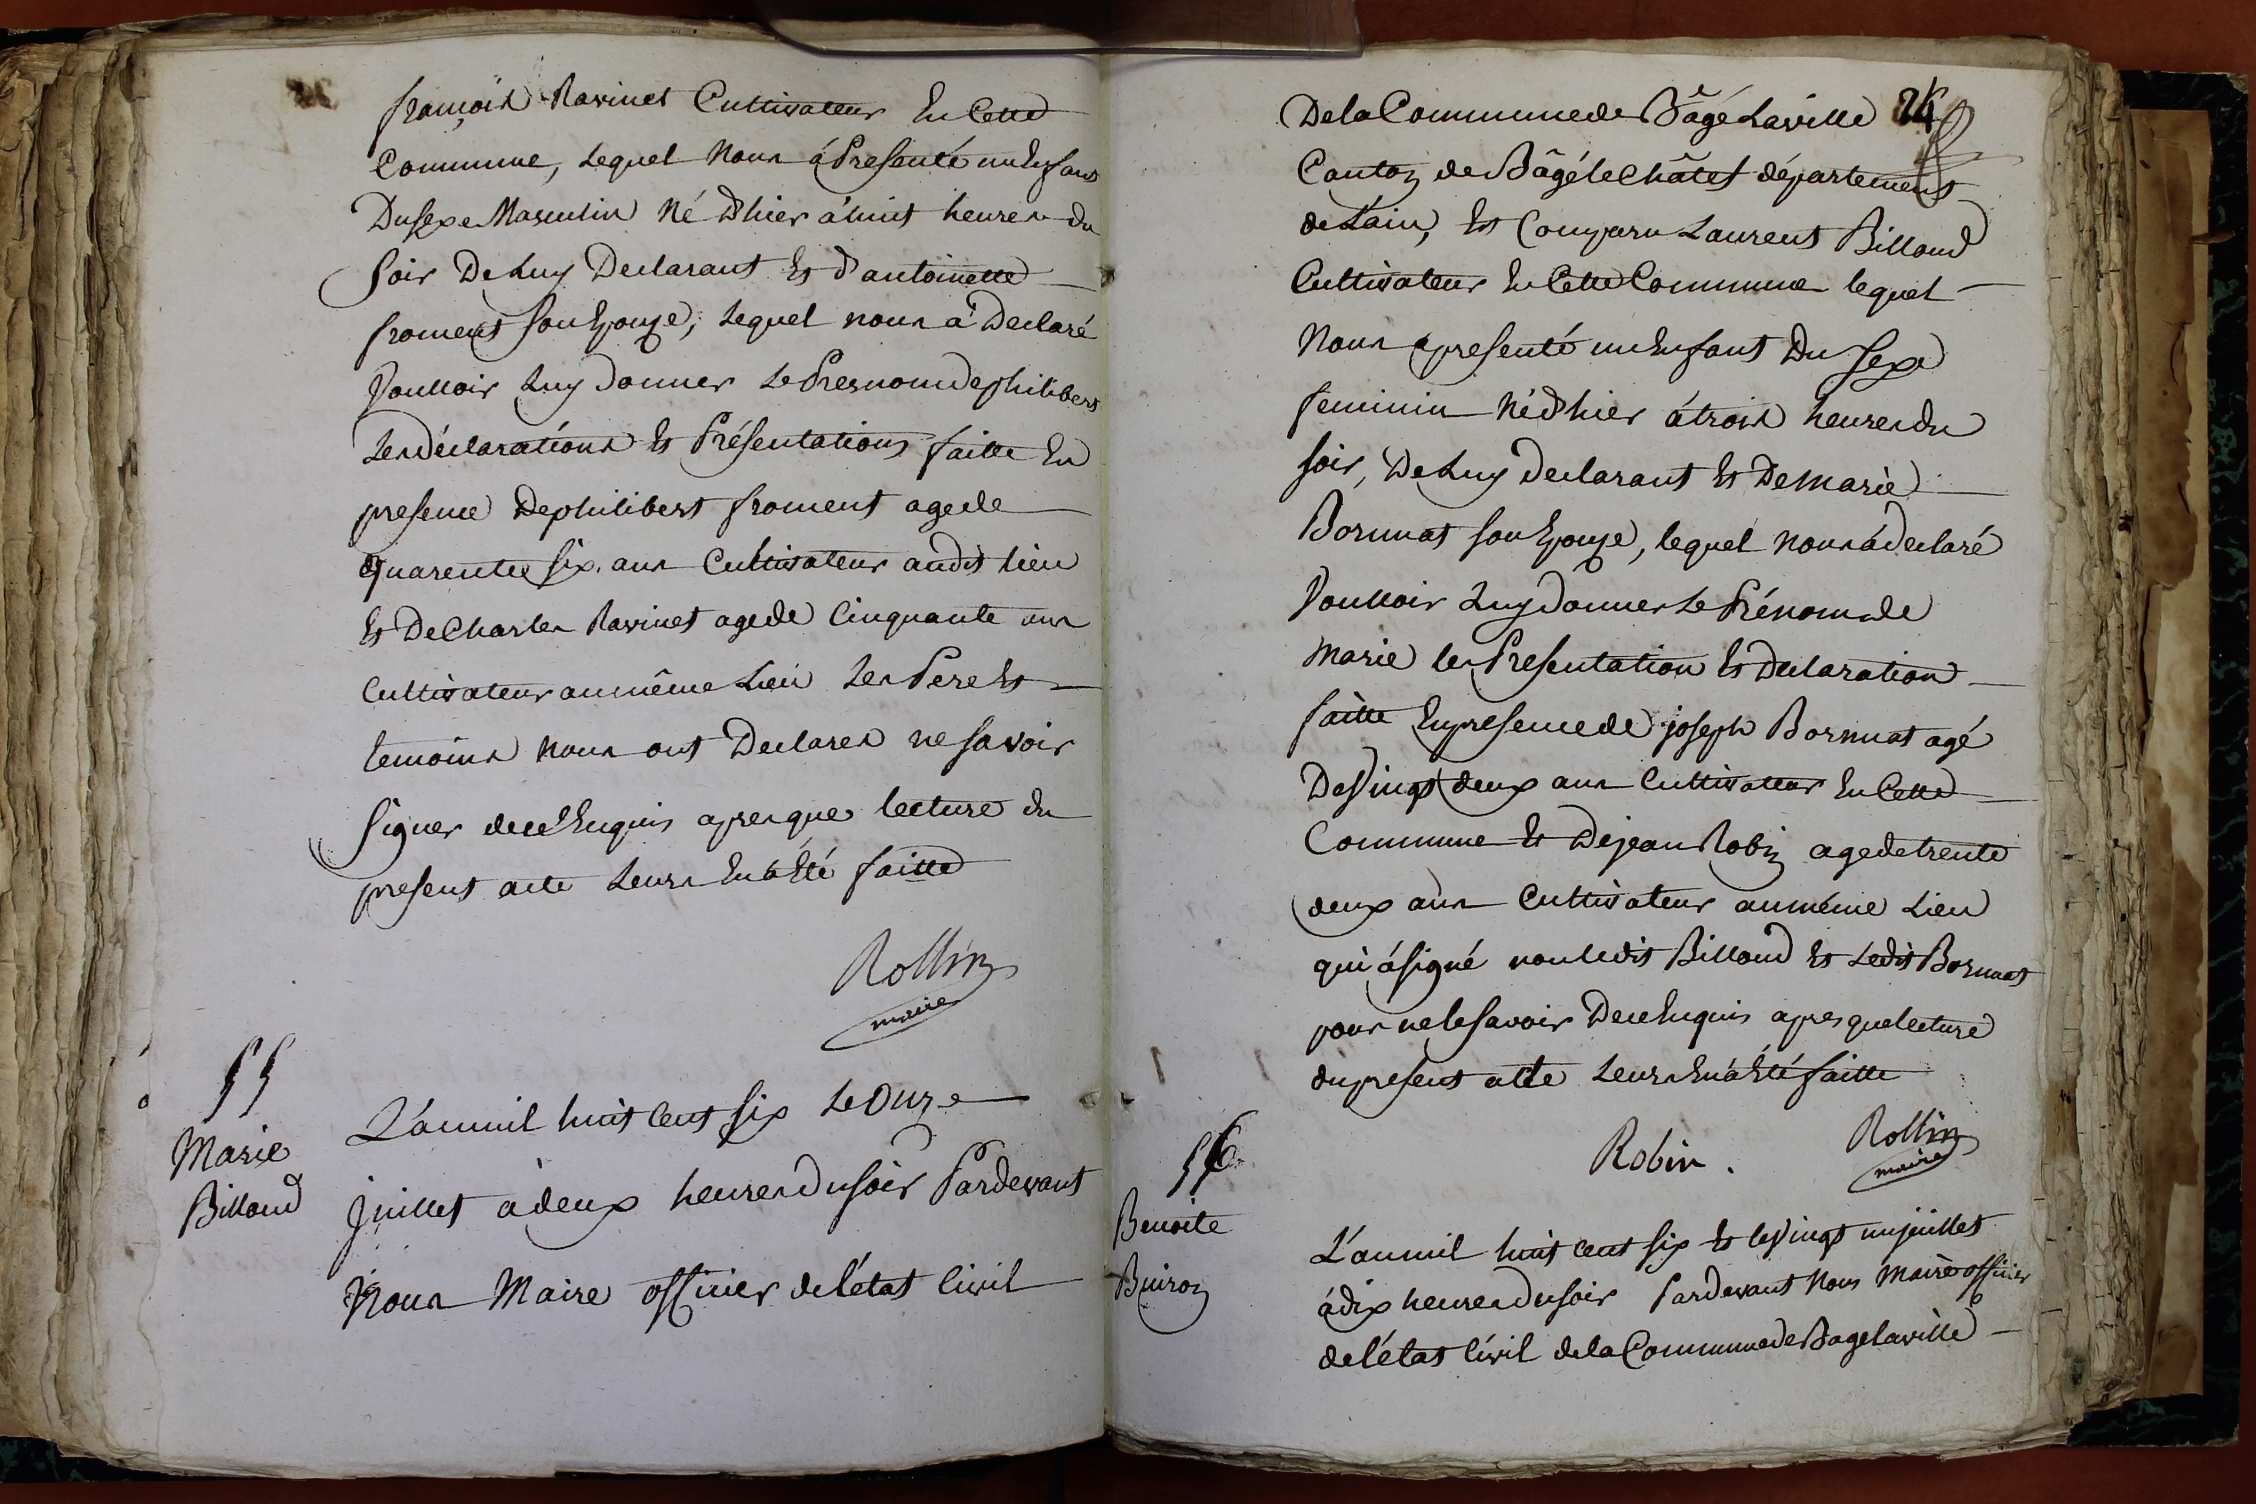 françois Ravinet Cultivateur En Cette
Commune, Lequel Nous á Presenté un Enfant
Du sexe Masculin Né D'hier á huit heures du
Soir De Luy Declarant Et d'antoinette
froment Son Epouze, Lequel nous a Declaré
Voulloir Luy donner Le Presnom de philibert
Les déclarations Et Présentations faitte En
presence De philibert froment age de
quarente six ans Cultivateur audit lieu
Et De Charles Ravinet age de Cinquante ans
Cultivateur au même Lieu Les Pere Et
temoins Nous ont Declares ne savoir
Signer de ce Enquis apres que lecture du
present acte Leurs En á Eté faitte
Rollin
maire
55
Marie
Billoud
L'an mil huit Cent Six Le Onze
Juillet à deux heures du soir Pardevant
Nous Maire officier de l'état Civil
24
De la Commune de Bâgé Laville
Canton de Bâgé le Châtel département
de L'ain, Et Comparu Laurent Billoud
Cultivateur En Cette Commune lequel
Nous a presenté un Enfant Du Sexe
feminin Né d'hier á trois heures du
soir, De Luy Declarant Et De Marie
Bornuat son Epouze, lequel nous á declaré
Voulloir Luy donner Le Prénom de
Marie les Presentation Et Declaration
faitte En presence de joseph Bornuat agé
De Vingt deux ans Cultivateur En Cette
Commune Et De jean Robin age de trente
deux ans Cultivateur au même Lieu
qui á signé non ledit Billoud Et Ledit Bornuat
pour ne le savoir De ce Enquis apres que lecture
du present acte Leurs En á Eté faitte
Robin. Rollin
maire
56
Benoite
Buiron
L'an mil huit cent six Et le Vingt un juillet
á dix heures du soir Pardevant Nous Maire officier
de l'état Civil de la Commune de Bagé laville